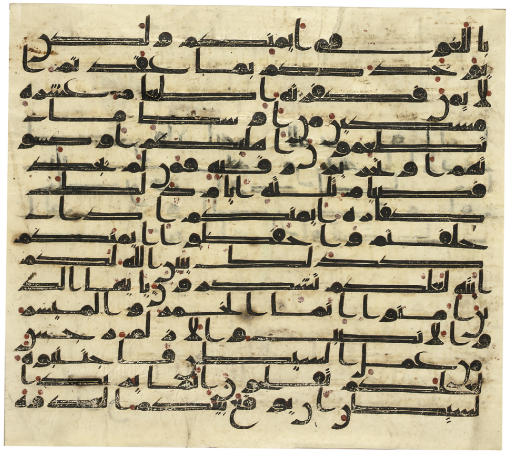 باللغو في ايمنكم ولكن
يوخذكم بما عقدتم ا
لايمن فكفرته اطعام عشره
مسكين من اوسط ما
تطعمون اهليكم او كسو
تهم او تحرير رقبه فمن لم يجد
فصيام ثلثه ايام ذلك
كفره ايمنكم اذا
حلفتم واحفظوا ايمنكم
كذلك يبين الله لكم
ايته لعلكم تشكرون يايها الذ
ين امنوا انما الخمر والميسر
والانصاب والازلم رجس
من عمل الشيطن فاجتنبوه
لعلكم تفلحون انما يريد ا
لشيطن ان يوقع بينكم العدوه